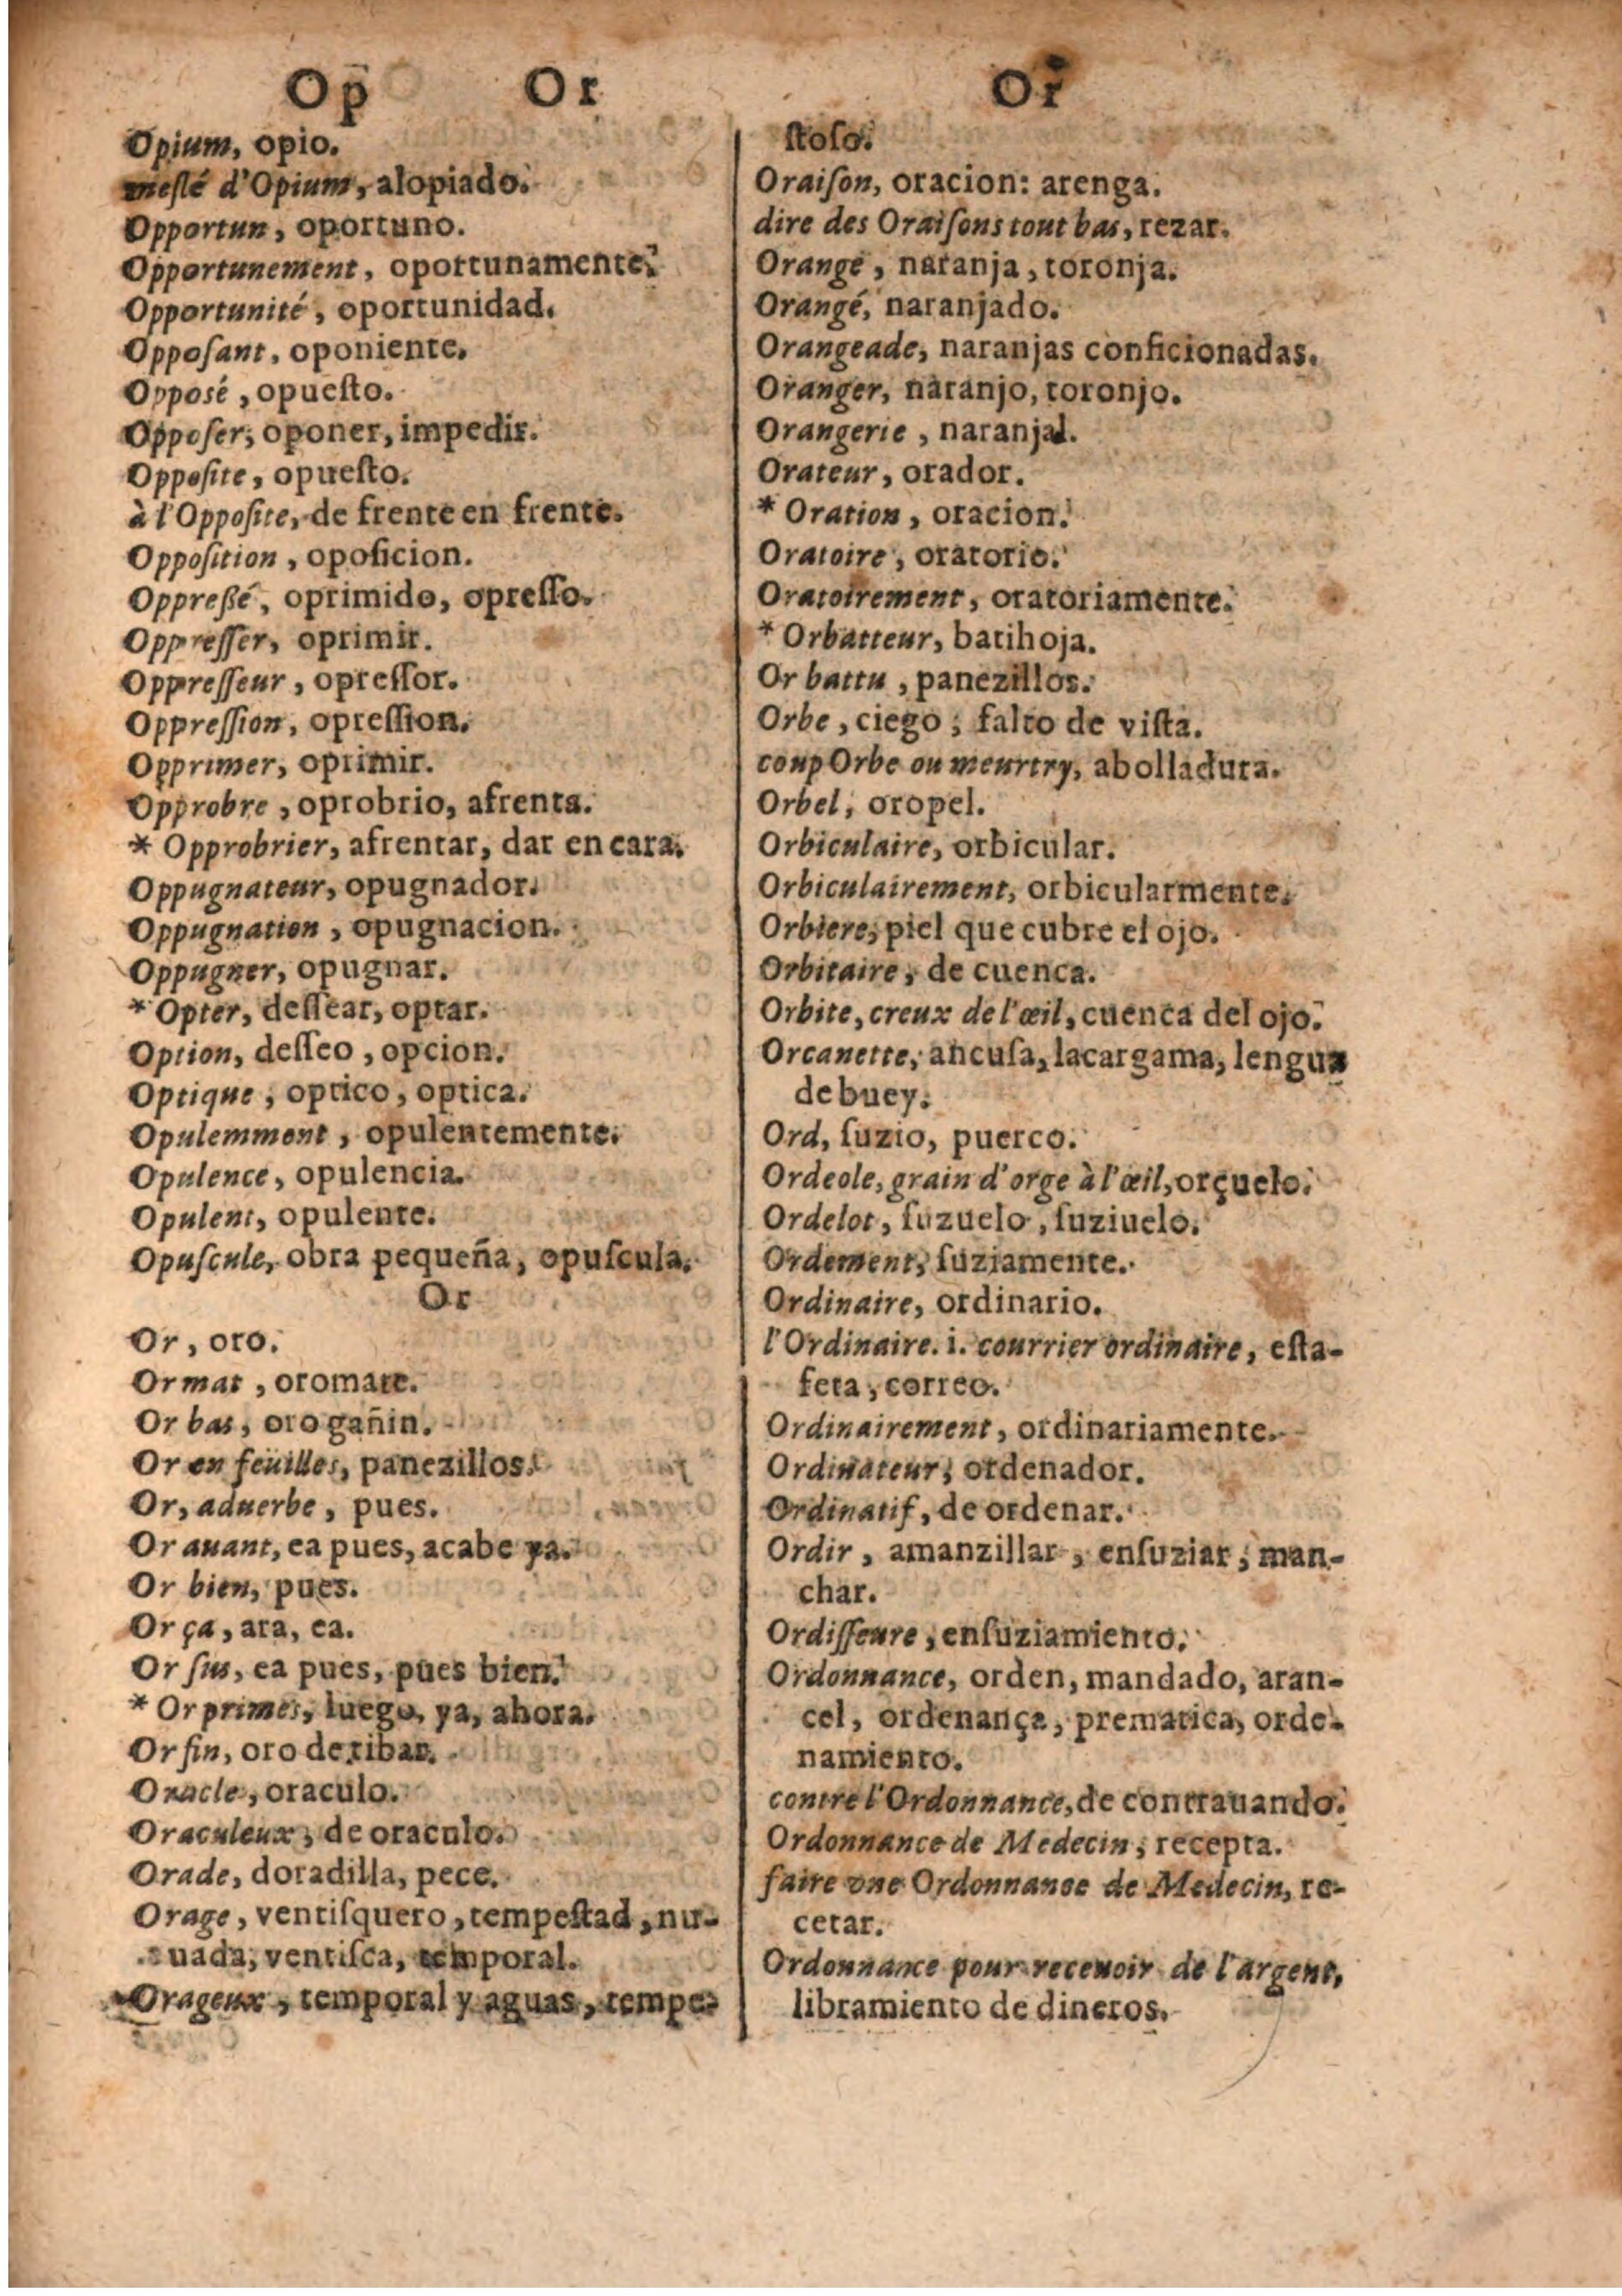 Op Or Or
Opium, opio.
meſlé d'Opium, alopiado.
Opportun, oportuno.
Opportunement, oportunamente.
Opportunité, oportunidad.
Oppoſant, oponiente.
Opposé, opueſto.
Oppoſer, oponer, impedir.
Oppoſite, opueſto.
à l'Oppoſite, de frente en frente.
Oppoſition, opoſicion.
Oppreßé, oprimido, opreſſo.
Oppreſſer, oprimir.
Oppreſſeur, opreſſor.
Oppreſſion, opreſſion.
Opprimer, oprimir.
Opprobre, oprobrio, afrenta.
* Opprobrier, afrentar, dar en cara.
Oppugnateur, opugnador.
Oppugnation, opugnacion.
Oppugner, opugnar.
* Opter, deſſear, optar.
Option, deſſeo, opcion.
Optique, optico, optica.
Opulemment, opulentemente.
Opulence, opulencia.
Opulent, opulente.
Opuſcule, obra pequeña, opuſcula.
Or
Or, oro.
Or mat, oro mate.
Or bas, oro gañin.
Or en feüilles, panezillos.
Or, aduerbe, pues.
Or auant, ea pues, acabe ya.
Or bien, pues.
Or ça, ara, ea.
Or ſus, ea pues, pues bien.
* Or primes, luego, ya, ahora.
Or fin, oro de tibar.
Oracle, oraculo.
Oraculeux, de oraculo.
Orade, doradilla, pece.
Orage, ventiſquero, tempeſtad, nu-
uada, ventiſca, temporal.
Orageux, temporal y aguas, tempe-
ſtoſo.
Oraiſon, oracion: arenga.
dire des Oraiſons tout bas, rezar.
Orange, naranja, toronja.
Orangé, naranjado.
Orangeade, naranjas conficionadas.
Oranger, naranjo, toronjo.
Orangerie, naranjal.
Orateur, orador.
* Oration, oracion.
Oratoire, oratorio.
Oratoirement, oratoriamente.
* Orbatteur, batihoja.
Or battu, panezillos.
Orbe, ciego, falto de viſta.
coup Orbe ou meurtry, abolladura.
Orbel, oropel.
Orbiculaire, orbicular.
Orbiculairement, orbicularmente.
Orbiere, piel que cubre el ojo.
Orbitaire, de cuenca.
Orbite, creux de l'œil, cuenca del ojo.
Orcanette, ancuſa, lacargama, lengua
de buey.
Ord, ſuzio, puerco.
Ordeole, grain d'orge à l'œil, orçuelo.
Ordelot, ſuzuelo, ſuziuelo.
Ordement, ſuziamente.
Ordinaire, ordinario.
l'Ordinaire. i. courrier ordinaire, eſta-
feta, correo.
Ordinairement, ordinariamente.
Ordinateur, ordenador.
Ordinatif, de ordenar.
Ordir, amanzillar, enſuziar, man-
char.
Ordiſſeure, enſuziamiento.
Ordonnance, orden, mandado, aran-
cel, ordenança, prematica, orde-
namiento.
contre l'Ordonnance, de contrauando.
Ordonnance de Medecin, recepta.
faire vne Ordonnance de Medecin, re-
cetar.
Ordonnance pour receuoir de l'argent,
libramiento de dineros.